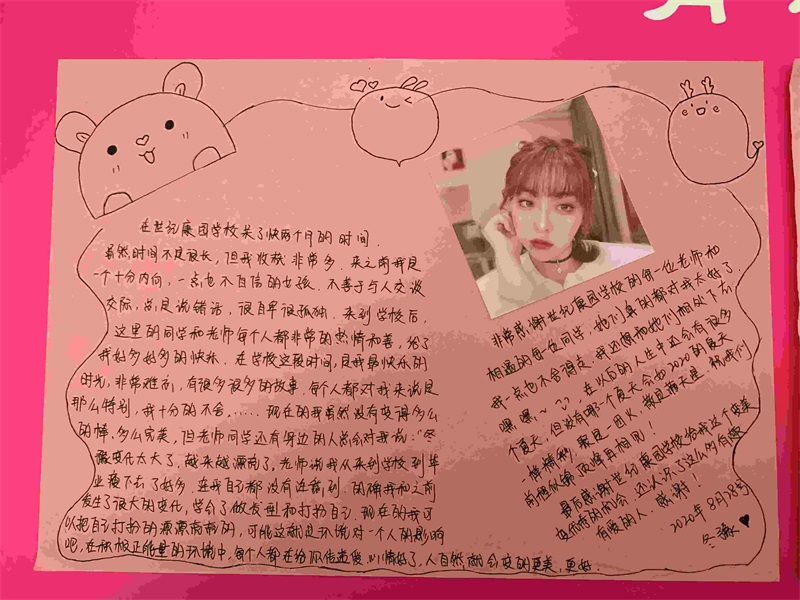 在世纪康园学校呆了快两个月的时间.
虽然时间不是很长，但我收获非常多. 来之前我是
一个十分内向，一点也不自信的女孩. 不善于与人交谈
交际，总是说错话，很自卑很孤独. 来到学校后，
这里的同学和老师每个人都非常的热情和善，给了
我好多好多的快乐. 在学校这段时间，是我最快乐的
时光，非常难忘，有很多很多的故事. 每个人都对我来说是
那么特别，我十分的不舍，…… 现在的我虽然没有变得多么
的棒，多么完美，但老师同学还有身边的人总会对我说：“冬
变化太大了，越来越漂亮了，老师说我从来到学校到毕
业瘦下去了好多. 连我自己都没有注意到. 的确我和之前
发生了很大的变化，学会了做发型和打扮自己. 现在的我可
以把自己打扮的漂漂亮亮的，可能这就是环境对一个人的影响
吧，在积极正能量的环境中，每个人都在给你传递爱，心情好了，人自然就会变的更美，更好.
非常感谢世纪康园学校的每一位老师和
相遇的每位同学. 她们真的都对我太好了，
我一点也不舍得走. 我还想和她们相处下去，
嘿嘿~ 在以后的人生中还会有很多
个夏天，但没有哪一个夏天会如2020的夏天
一样精彩. 聚是一团火，散是满天星，祝我们
前程似锦，顶峰再相见！
最后感谢世纪康园学校给我这个变美
变优秀的机会. 还认识了这么多有趣
有爱的人. 感谢！
2020年8月28号
冬